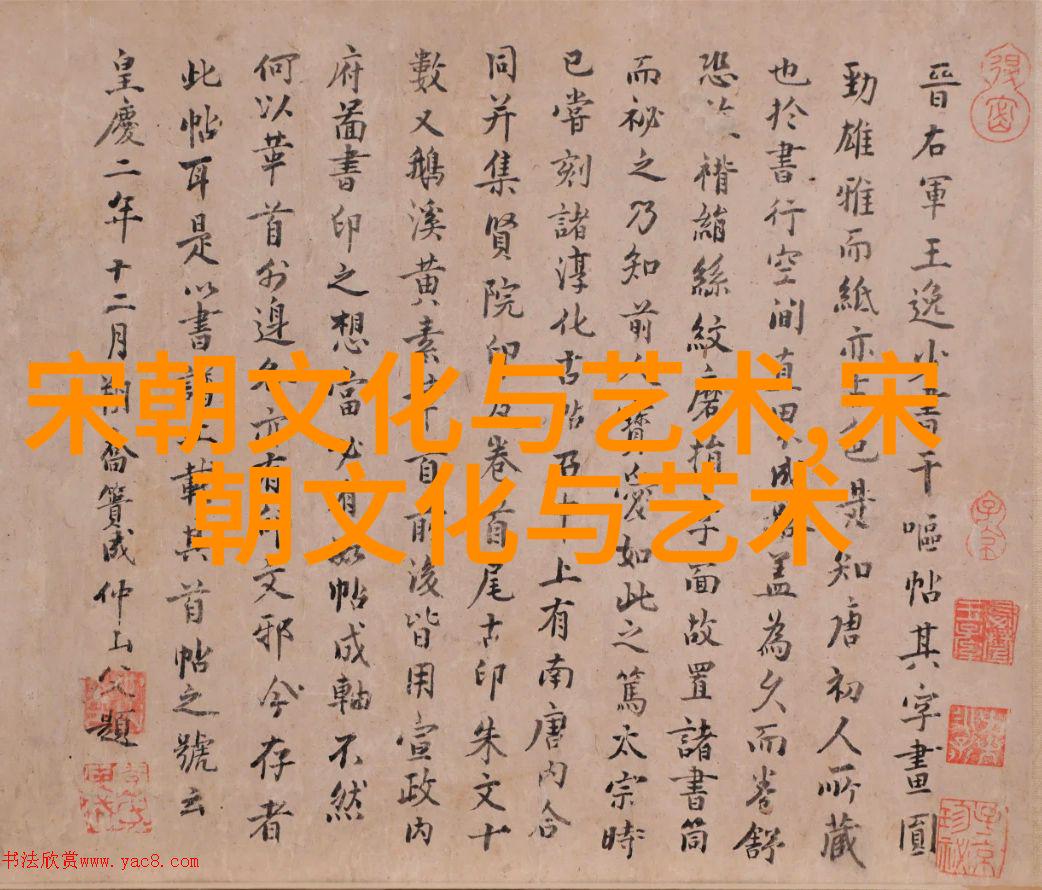 晉右軍王逸少
干嘔帖其字畫圓
勁雄雅而紙亦上色是知唐初人所藏
也於書行空間直界成
盖為久而卷舒
恐
褙絹絲紋磨揩字面故置諸書筒
而秘之乃知前人寶愛如此之篤太宗時
已嘗刻諸淳化古帖
上有南唐内合
同并集賢院印
卷首尾古印朱文十
數又鵝溪黄素
前後皆用宣政内
府圖書印之想當
有
帖成軸不然
何以華首外邊
亦有
文邪今存者
此帖耳是以書
載其首帖之號云
皇慶二年十二月朔
仲山父題
宋朝文化与艺术,宋
朝文化与艺术
书法欣赏www.yac8.com